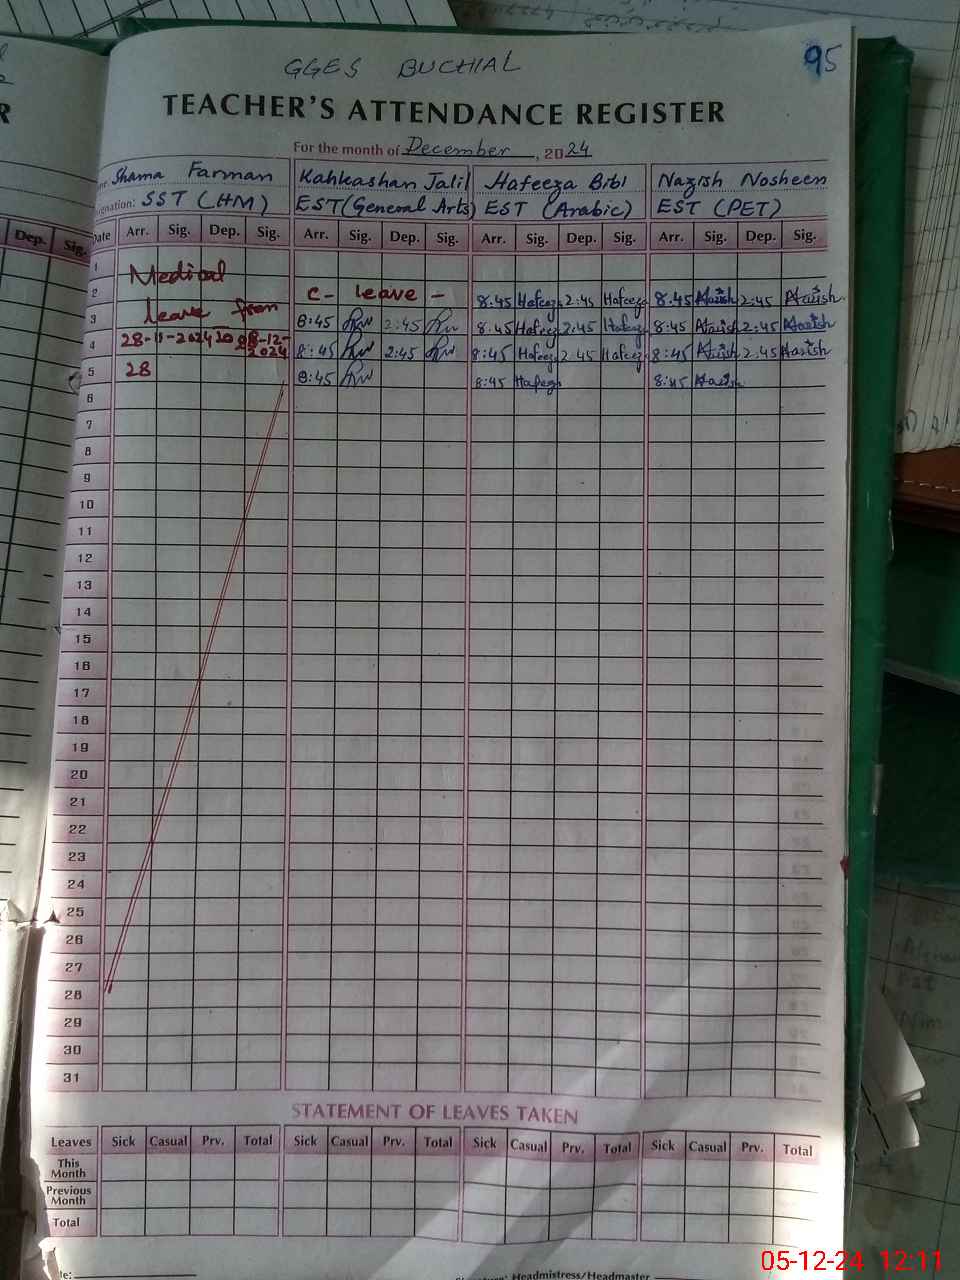 GGES BUCHIAL
95
TEACHER'S ATTENDANCE REGISTER
For the month of December, 2024
Shama Farman Kahkashan Jalil Hafeeza Bibi Nazish Nosheen
SST (HM) EST (General Arts) EST (Arabic) EST (PET)
Date Arr. Sig. Dep. Sig. Arr. Sig. Dep. Sig. Arr. Sig. Dep. Sig. Arr. Sig. Dep. Sig.
1 Medical
2 leave from C- leave - 8:45 Hafeeza 2:45 Hafeeza 8:45 2:45
3 8:45 2:45 8:45 Hafeeza 2:45 Hafeeza 8:45 2:45
4 28-11-2024 To 28-12-2024 8:45 2:45 8:45 Hafeeza 2:45 Hafeeza 8:45 2:45
5 28 8:45 8:45 Hafeeza 8:45
6
7
8
9
10
11
12
13
14
15
16
17
18
19
20
21
22
23
24
25
26
27
28
29
30
31
STATEMENT OF LEAVES TAKEN
Leaves Sick Casual Prv. Total Sick Casual Prv. Total Sick Casual Prv. Total Sick Casual Prv. Total
This Month
Previous Month
Total
Headmistress/Headmaster
05-12-24 12:11